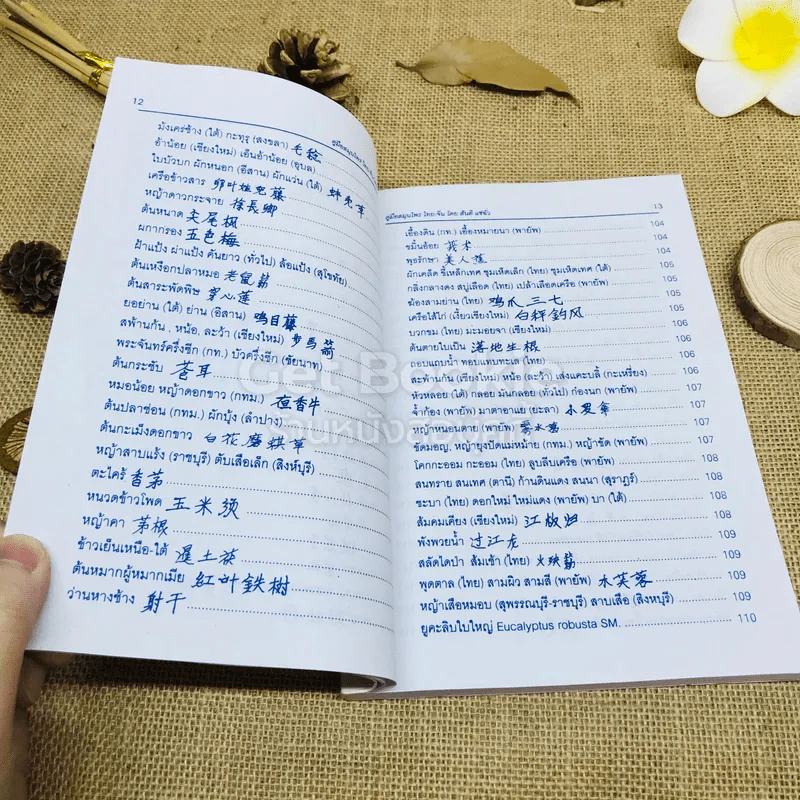 12
คู่มือสมุนไพร ไทย
ม้งเคร่ช้าง (ใต้) กะทุรุ (สงขลา) 毛稔
อ้าน้อย (เชียงใหม่) เอ็นอ้าน้อย (อุบล)
ใบบัวบก ผักหนอก (อีสาน) ผักแว่น (ใต้)
เครือข้าวสาร 卵叶娃儿藤
หญ้าดาวกระจาย 徐長卿
ต้นหนาด 尖尾楓
ผกากรอง 五色梅
ฝ้าแป้ง ผ่าแป้ง คันยาว (ทั่วไป) ล้อแป้ง (สุโขทัย)
ต้นเหงือกปลาหมอ 老鼠簕
ต้นสาระพัดพิษ 穿心蓮
ยอย่าน (ใต้) ย่าน (อีสาน) 鸡目藤
สพ้านก้น , หน้อ, ละว้า (เชียงใหม่) 步馬箭
พระจันทร์ครึ่งซีก (กท.) บัวครึ่งซีก (ชัยนาท)
ต้นกระชับ 苍耳
หมอน้อย หญ้าดอกขาว (กทม.) 夜香牛
ต้นปลาช่อน (กทม.) ผักบุ้ง (ลำปาง)
ต้นกะเม็งดอกขาว 白花蟛蜞草
หญ้าสาบแร้ง (ราชบุรี) ตับเสือเล็ก (สิงห์บุรี)
ตะไคร้ 香茅
หนวดข้าวโพด 玉米须
หญ้าคา 茅根
ข้าวเย็นเหนือ-ใต้ 暹土茯
ต้นหมากผู้หมากเมีย 紅叶鉄樹
ว่านหางช้าง 射干
คู่มือสมุนไพร ไทย-จีน โดย ตันติ แซ่ฉั่ว 13
เอื้องดิน (กท.) เอื้องหมายนา (พายัพ) 104
ขมิ้นอ้อย 莪术 104
พุธรักษา 美人蕉 104
ผักเคล็ด ขี้เหล็กเทศ ชุมเห็ดเล็ก (ไทย) ชุมเห็ดเทศ (ใต้) 104
กลิงกลางดง สบู่เลือด (ไทย) เปล้าเลือดเครือ (พายัพ) 105
ฆ้องสามย่าน (ไทย) 鸡爪三七 105
เครือไส้ไก่ (เงี้ยวเชียงใหม่) 白秤鈎风 105
บวกขม (ไทย) มะมอยจา (เชียงใหม่) 106
ต้นตายใบเป็น 落地生根 106
ถอบแถบน้ำ ทอบแทบทะเล (ไทย) 106
สะพ้านก้น (เชียงใหม่) หน้อ สะว้า เส่งแคะบลี้ (กะเหรี่ยง) 106
หัวหลอย (ใต้) กลอย มันกลอย (ทั่วไป) ก๋องนก (พายัพ) 107
จ้ำก้อง (พายัพ) มาตาอาแย (ยะลา) 107
หญ้าหนอนตาย (พายัพ) 107
ขัดมอญ, หญ้ายุงปัดแม่หม้าย (กทม.) หญ้าขัด (พายัพ) 107
โคกกะออม กะออม (ไทย) ลูบลีบเครือ (พายัพ) 108
สนทราย สนเทศ (ตานี) ก้านดินแดง สนนา (สุราฎร์) 108
ชะบา (ไทย) ดอกใหม่ ใหม่แดง (พายัพ) บา (ใต้) 108
ส้มคมเคียง (เชียงใหม่) 108
พังพวยน้ำ 过江龙 109
สลัดไดป่า ส้มเช้า (ไทย) 火殃簕 109
พุดตาล (ไทย) สามผิว สามสี (พายัพ) 木芙蓉 109
หญ้าเสือหมอบ (สุพรรณบุรี-ราชบุรี) สาบเสือ (สิงหบุรี) 109
ยูคะลิบใบใหญ่ Eucalyptus robusta SM. 110
Get Bookie
ร้านหนังสือ